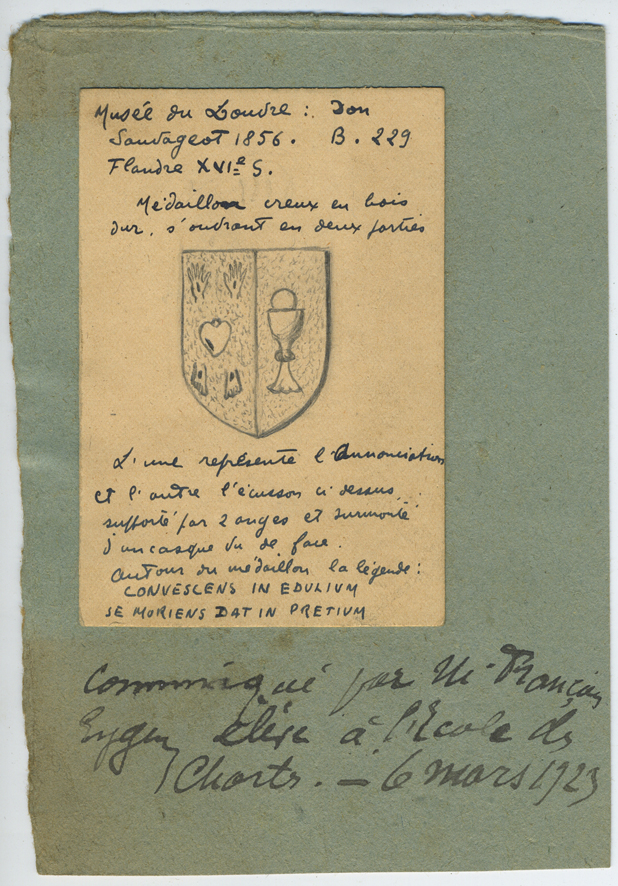 Musée du Louvre : Don
Sauvageot 1856. B. 229
Flandre XVIe S.
Médaillon creux en bois
dur, s'ouvrant en deux parties
L'une représente l'Annonciation
et l'autre l'écusson ci dessus
supporté par 2 anges et surmonté
d'un casque vu de face.
Autour du médaillon la légende :
CONVESCENS IN EDULIUM
SE MORIENS DAT IN PRETIUM
Communiqué par Mr François
Eygun élève à l'Ecole des
Chartes. — 6 mars 1923